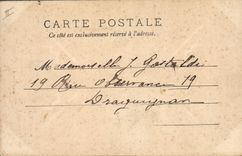 CARTE POSTALE
Ce côté est exclusivement réservé à l'adresse.
Mademoiselle J. Gastaldi
19 Rue Observance 19
Draguignan